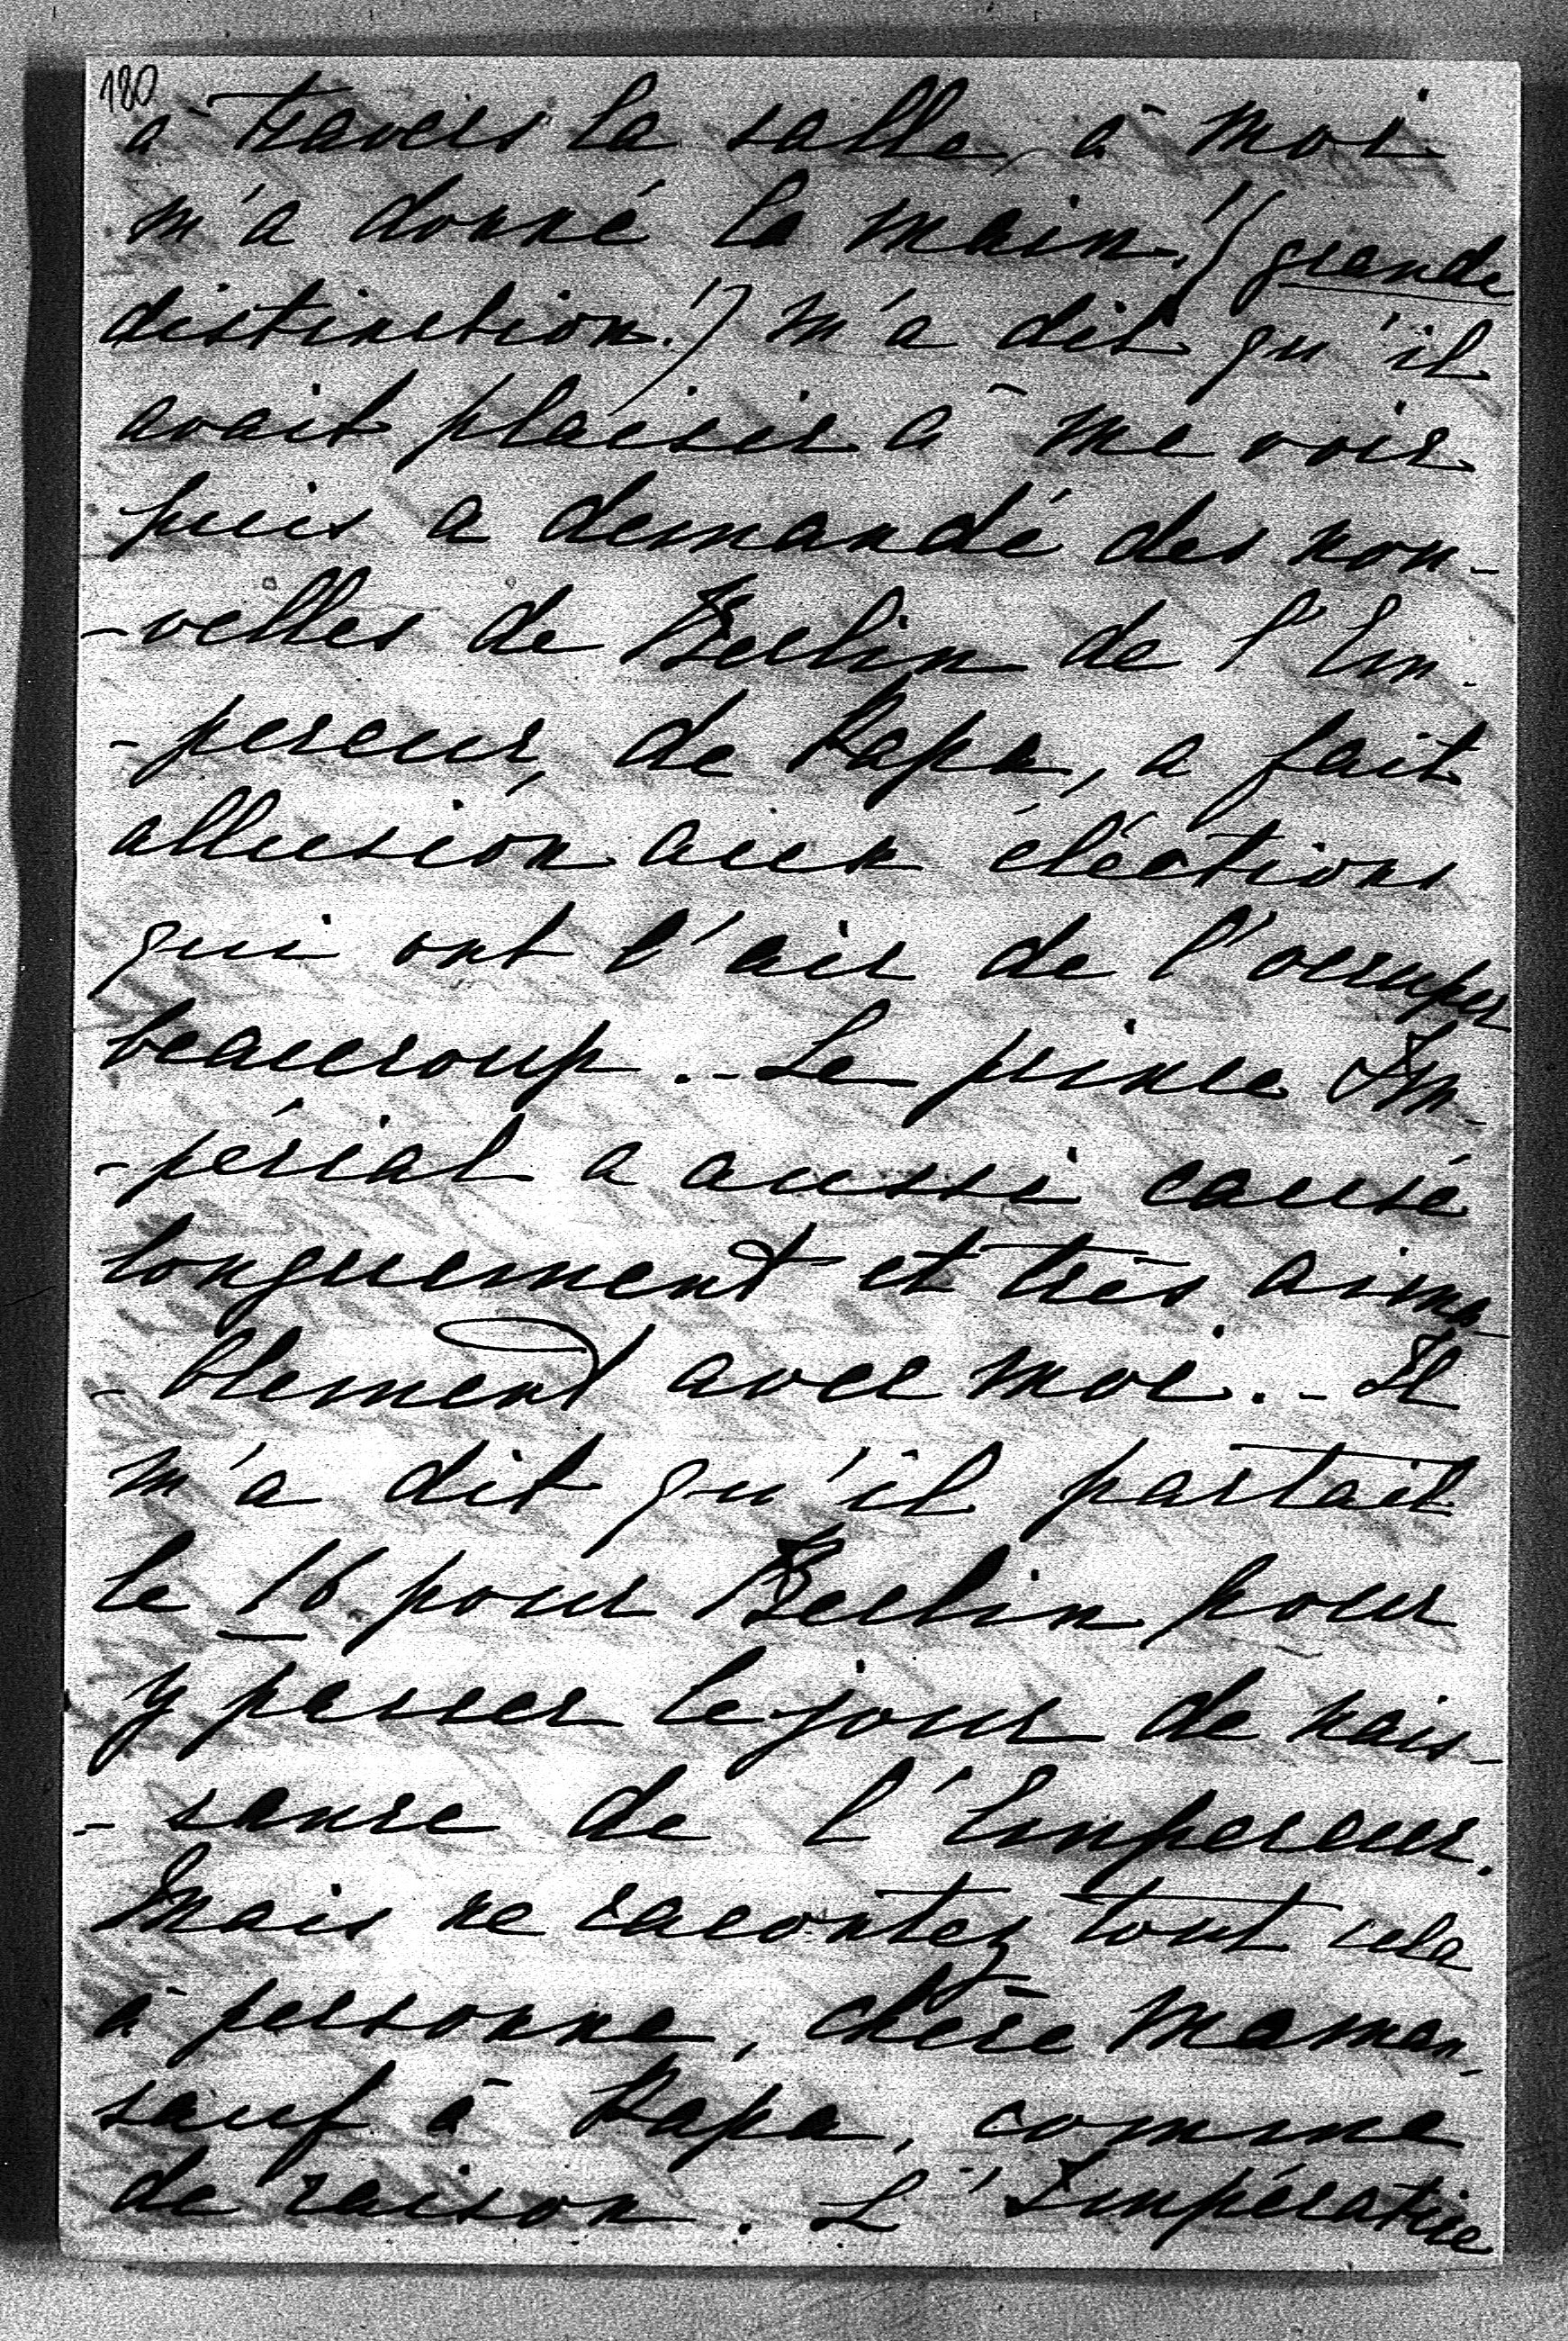 180
à travers la salle, à moi
m'a donné la main! (grande
distinction!) m'a dit qu'il
avait plaisir à me voir
puis a demandé des nou-
-velles de Berlin de l'Em-
-pereur, de Papa, a fait
allusion aux éléctions
qui ont l'air de l'occuper
beaucoup.- Le prince Im-
-périal a aussi causé
longuement et très aima-
-blement avec moi.- Il
m'a dit qu'il partait
le 16 pour Berlin pour
y passer le jour de nais-
-sance de l'Empereur.
Mais ne racontez tout cela
à personne, chère Maman,
sauf à Papa, comme
de raison. L'Impératrice